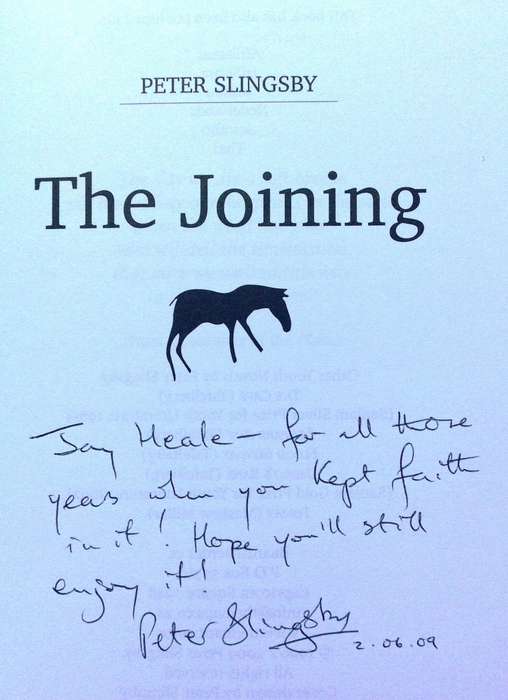 PETER SLINGSBY
The Joining
Jay Heale – for all those
years when you kept faith
in it! Hope you'll still
enjoy it!
Peter Slingsby
2.06.09